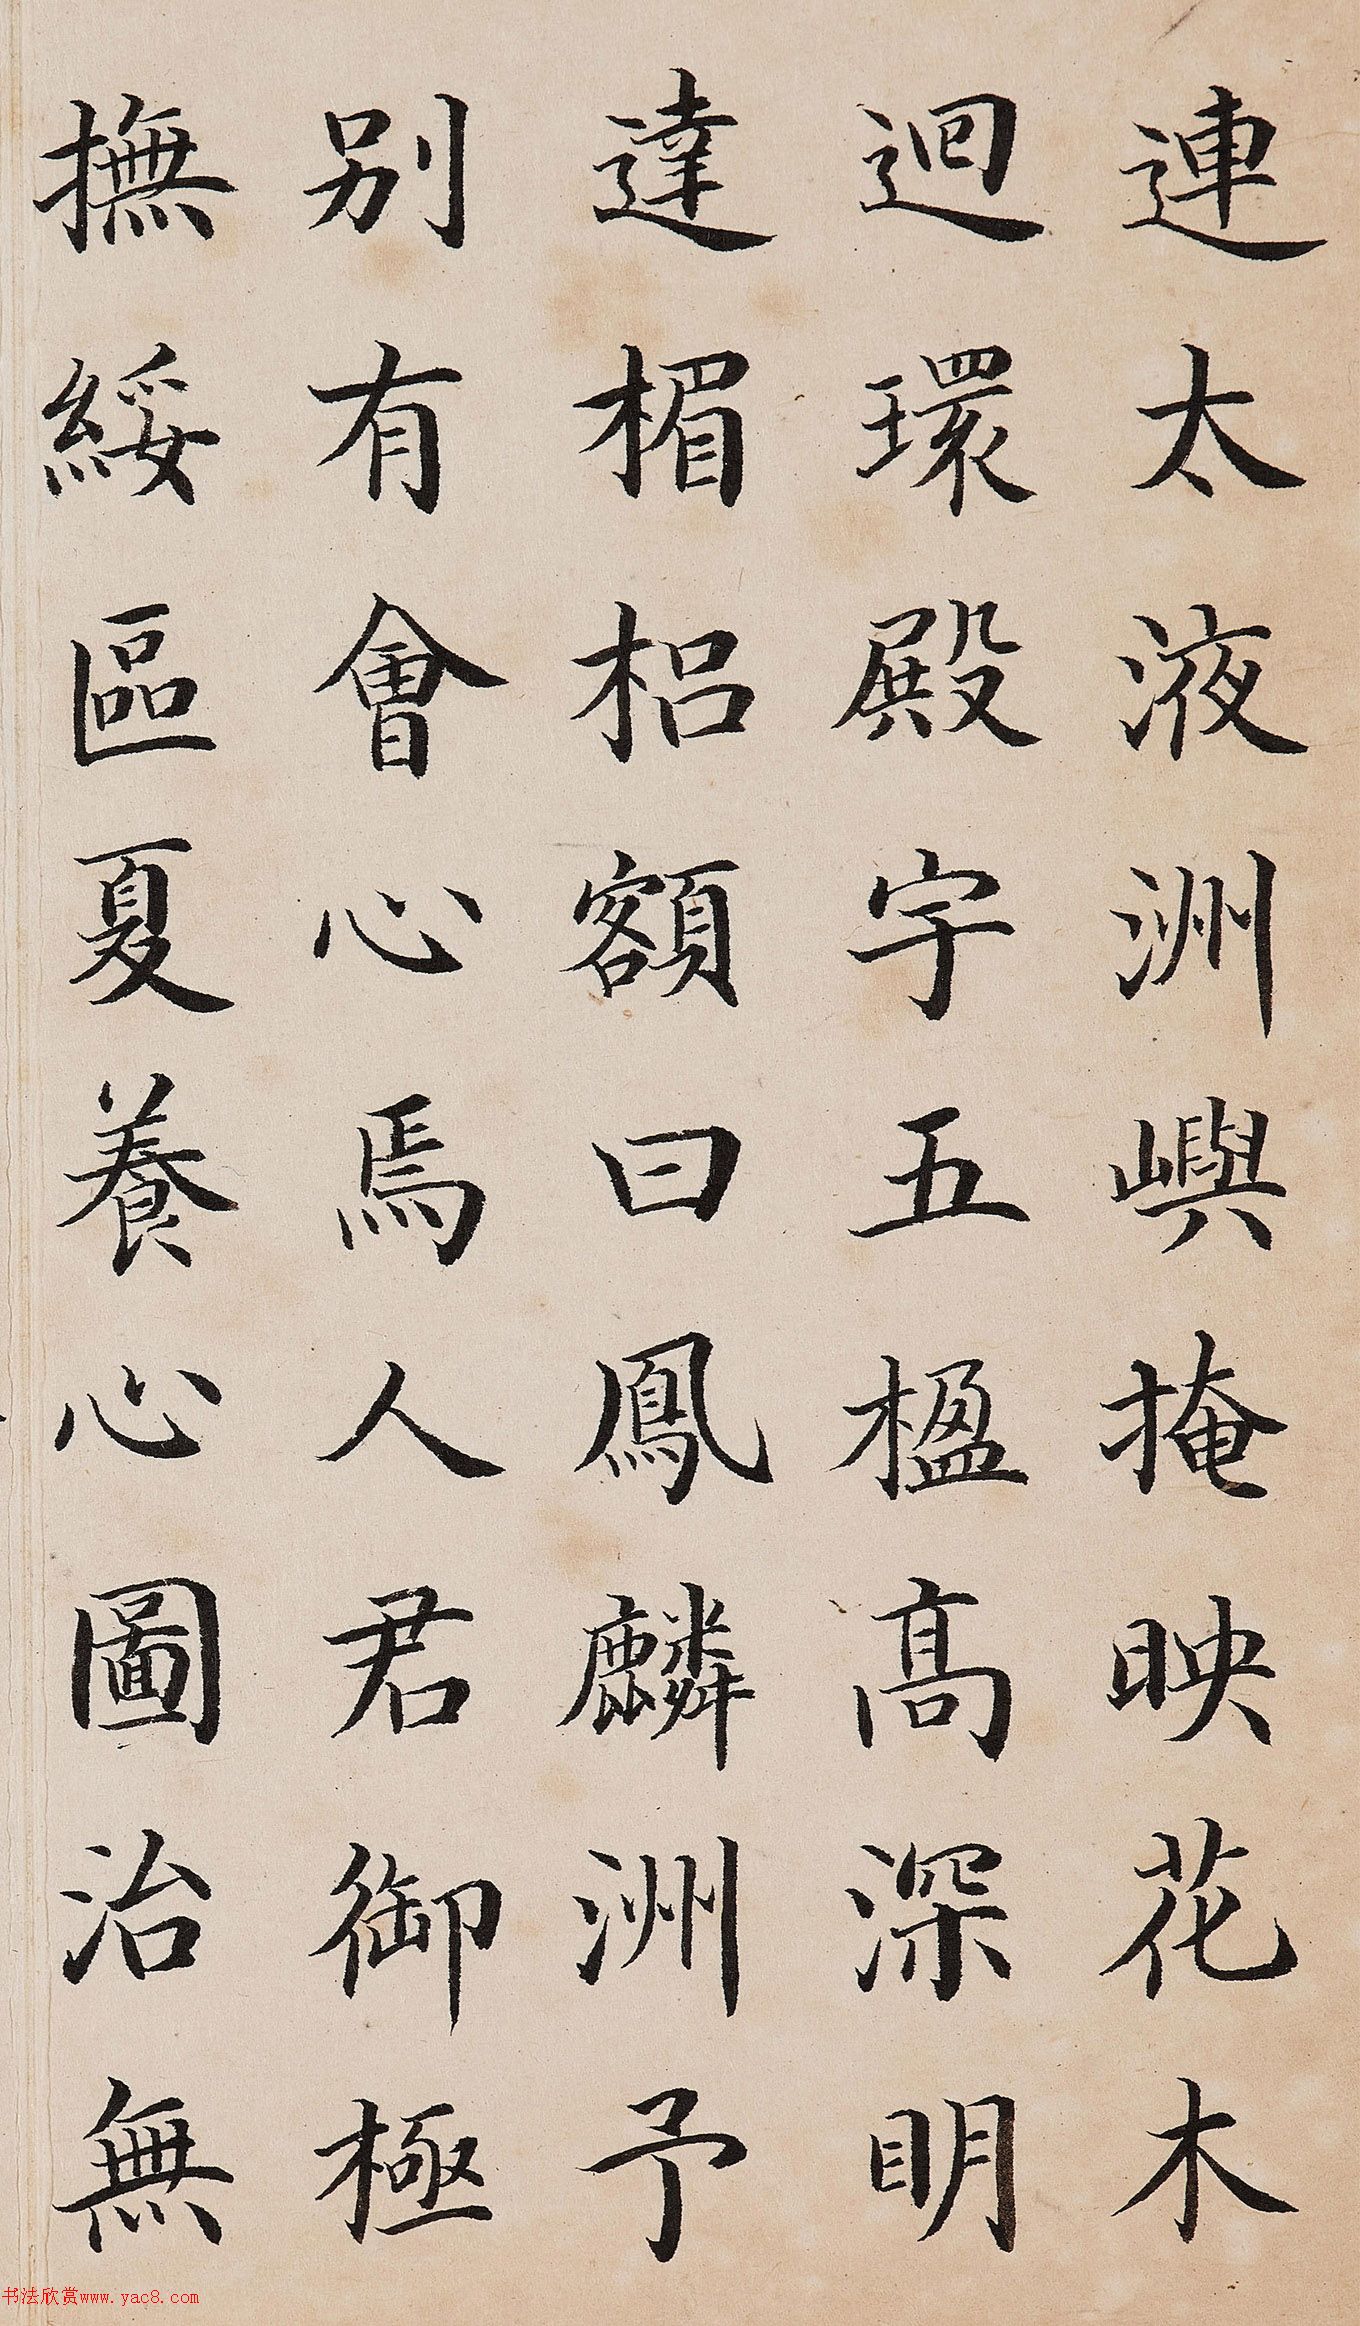 連太液洲嶼掩映花木
迴環殿宇五楹高深明
達楣梠額曰鳳麟洲予
别有會心焉人君御極
撫綏區夏養心圖治無
书法欣赏www.yac8.com